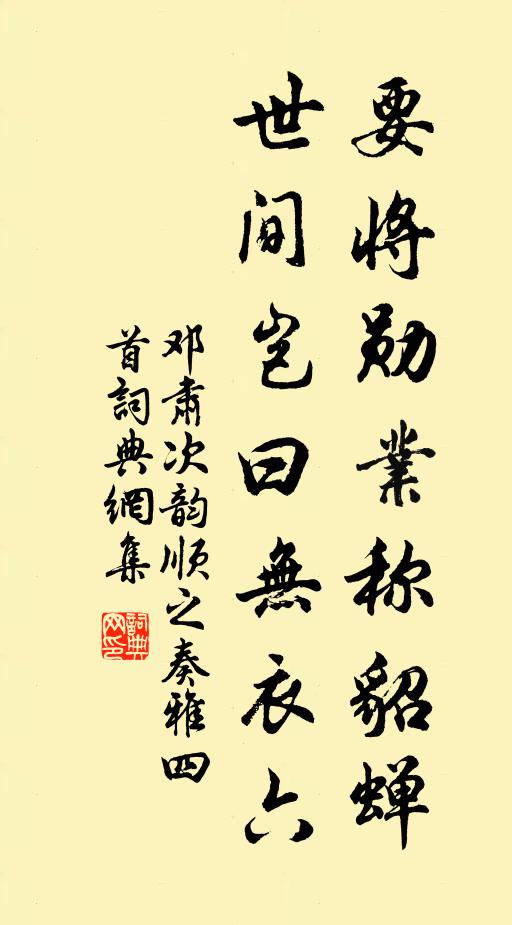 要将勋業称貂蝉
世间岂曰無衣六
邓肃次韵顺之奏雅四
首詞典網集
詞典
网印